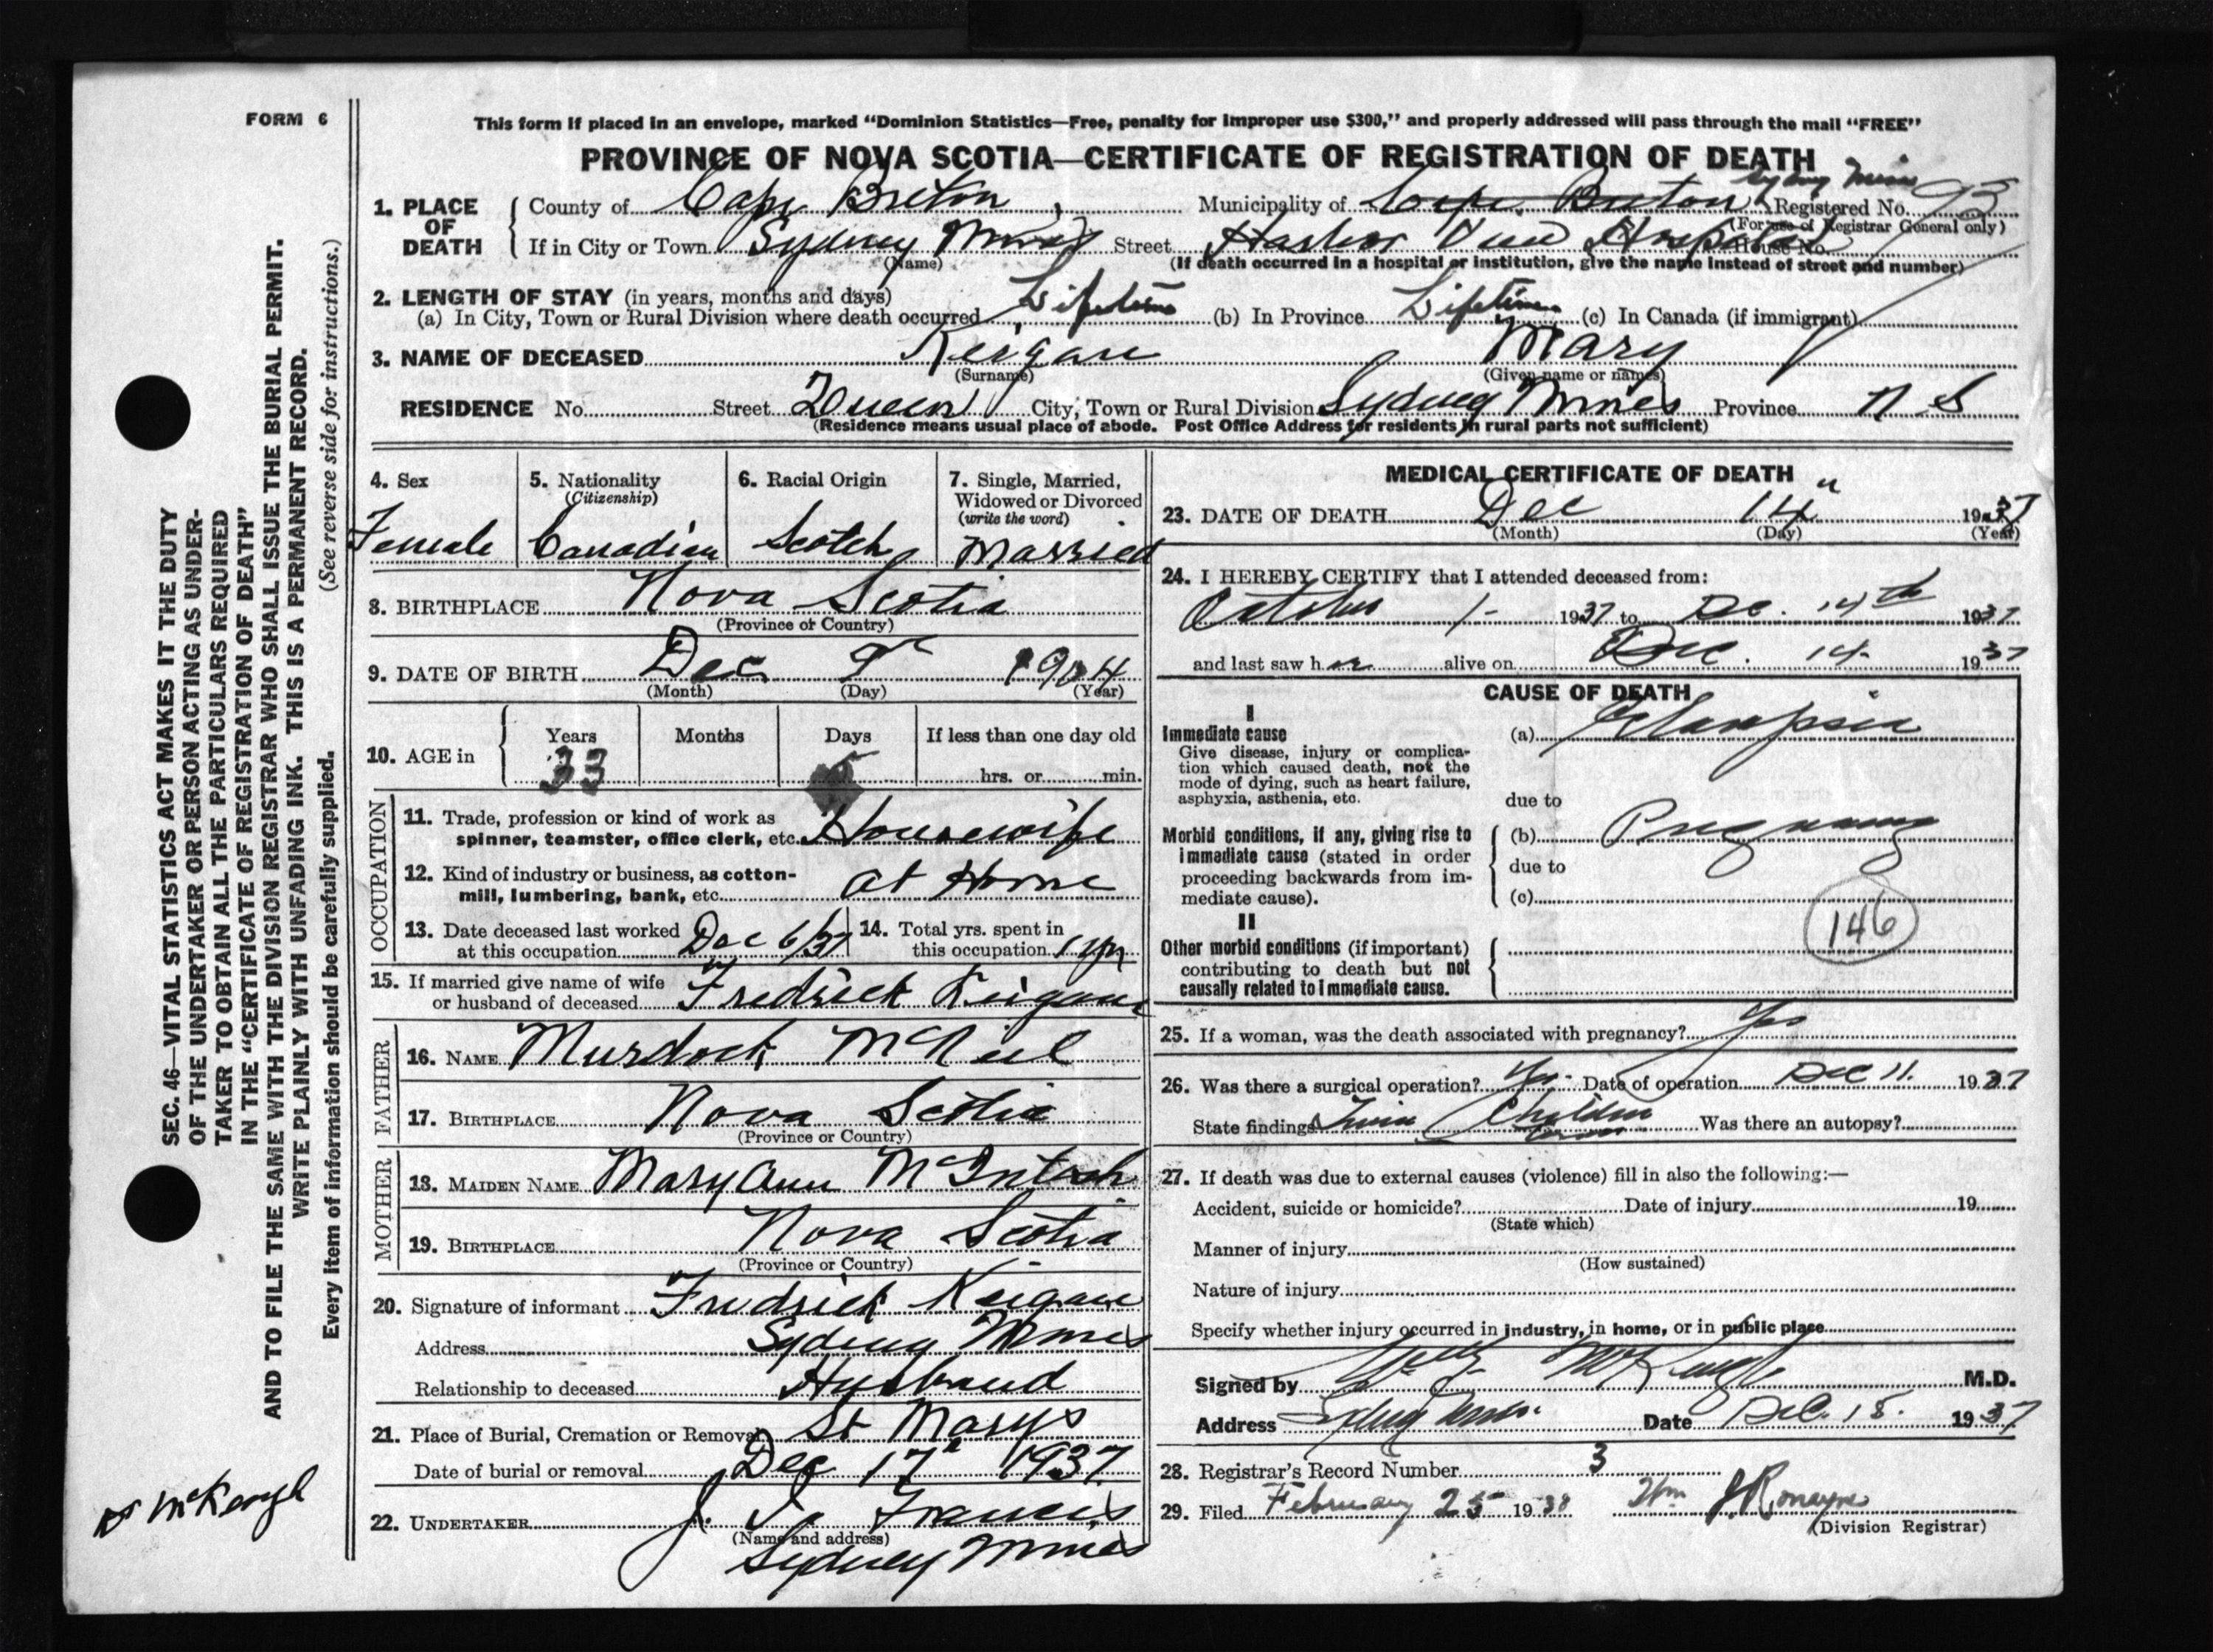 FORM 6
This form if placed in an envelope, marked “Dominion Statistics—Free, penalty for improper use $300,” and properly addressed will pass through the mail “FREE”
PROVINCE OF NOVA SCOTIA—CERTIFICATE OF REGISTRATION OF DEATH
1. PLACE OF DEATH { County of Cape Breton Municipality of Cape Breton Sydney Mines Registered No. 93
(For use of Registrar General only)
If in City or Town Sydney Mines Street Harbor View Hospital House No.
(Name) (If death occurred in a hospital or institution, give the name instead of street and number)
2. LENGTH OF STAY (in years, months and days)
(a) In City, Town or Rural Division where death occurred Lifetime (b) In Province Lifetime (c) In Canada (if immigrant)
3. NAME OF DECEASED Keigan Mary
(Surname) (Given name or names)
RESIDENCE No. Street Queen City, Town or Rural Division Sydney Mines Province N. S
(Residence means usual place of abode. Post Office Address for residents in rural parts not sufficient)
4. Sex 5. Nationality (Citizenship) 6. Racial Origin 7. Single, Married, Widowed or Divorced (write the word)
Female Canadian Scotch Married
8. BIRTHPLACE Nova Scotia
(Province or Country)
9. DATE OF BIRTH Dec 1904
(Month) (Day) (Year)
10. AGE in { Years Months Days If less than one day old
33 hrs. or min.
OCCUPATION
11. Trade, profession or kind of work as
spinner, teamster, office clerk, etc. Housewife
12. Kind of industry or business, as cotton-
mill, lumbering, bank, etc. at Home
13. Date deceased last worked at this occupation Dec 6/37 14. Total yrs. spent in this occupation 1 yr
15. If married give name of wife
or husband of deceased Fredrick Keigan
FATHER
16. NAME Murdock McNeil
17. BIRTHPLACE Nova Scotia
(Province or Country)
MOTHER
18. MAIDEN NAME Mary Ann McIntosh
19. BIRTHPLACE Nova Scotia
(Province or Country)
20. Signature of informant Fredrick Keigan
Address Sydney Mines
Relationship to deceased Husband
21. Place of Burial, Cremation or Removal St Marys
Date of burial or removal Dec 17 1937
22. UNDERTAKER J. Francis
(Name and address)
Sydney Mines
MEDICAL CERTIFICATE OF DEATH
23. DATE OF DEATH Dec 14 1937
(Month) (Day) (Year)
24. I HEREBY CERTIFY that I attended deceased from:
October 1- 1937 to Dec. 14th 1937
and last saw her alive on Dec. 14. 1937
CAUSE OF DEATH
I
Immediate cause (a) Eclampsia
Give disease, injury or complica-
tion which caused death, not the
mode of dying, such as heart failure,
asphyxia, asthenia, etc.
due to
Morbid conditions, if any, giving rise to
immediate cause (stated in order
proceeding backwards from im-
mediate cause).
(b) Pregnancy
due to
(c)
146
II
Other morbid conditions (if important)
contributing to death but not
causally related to immediate cause.
25. If a woman, was the death associated with pregnancy? Yes
26. Was there a surgical operation? Yes. Date of operation Dec 11. 1937
State findings Twin Children Was there an autopsy?
27. If death was due to external causes (violence) fill in also the following:—
Accident, suicide or homicide? Date of injury 19
(State which)
Manner of injury
(How sustained)
Nature of injury
Specify whether injury occurred in industry, in home, or in public place
Signed by McKeough M.D.
Address Sydney Mines. Date Dec. 18. 1937
28. Registrar's Record Number 3
29. Filed February 25 1938 Wm J Romayne
(Division Registrar)
SEC. 46—VITAL STATISTICS ACT MAKES IT THE DUTY
OF THE UNDERTAKER OR PERSON ACTING AS UNDER-
TAKER TO OBTAIN ALL THE PARTICULARS REQUIRED
IN THE “CERTIFICATE OF REGISTRATION OF DEATH”
AND TO FILE THE SAME WITH THE DIVISION REGISTRAR WHO SHALL ISSUE THE BURIAL PERMIT.
WRITE PLAINLY WITH UNFADING INK. THIS IS A PERMANENT RECORD.
Every item of information should be carefully supplied. (See reverse side for instructions.)
Dr McKeough